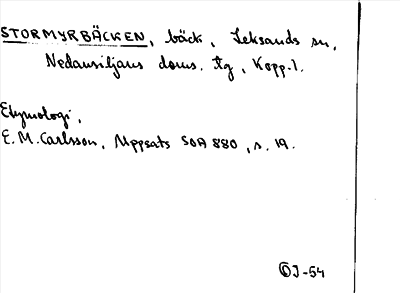 STORMYRBÄCKEN, bäck, Leksands sn,
Nedansiljans doms. tg, Kopp. l.
Etymologi,
E. M. Carlsson, Uppsats SOA 880, s. 19.
OJ-54